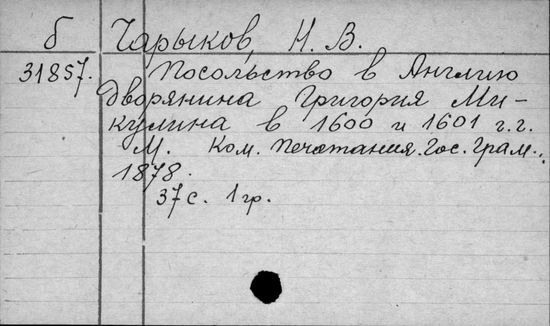 б Чарыков, Н. В.
31857. Посольство в Англию
дворянина Григория Ми-
кулина в 1600 и 1601 г.г.
М. Ком. печатания. Гос. Грам.,
1878.
37 с. 1 гр.